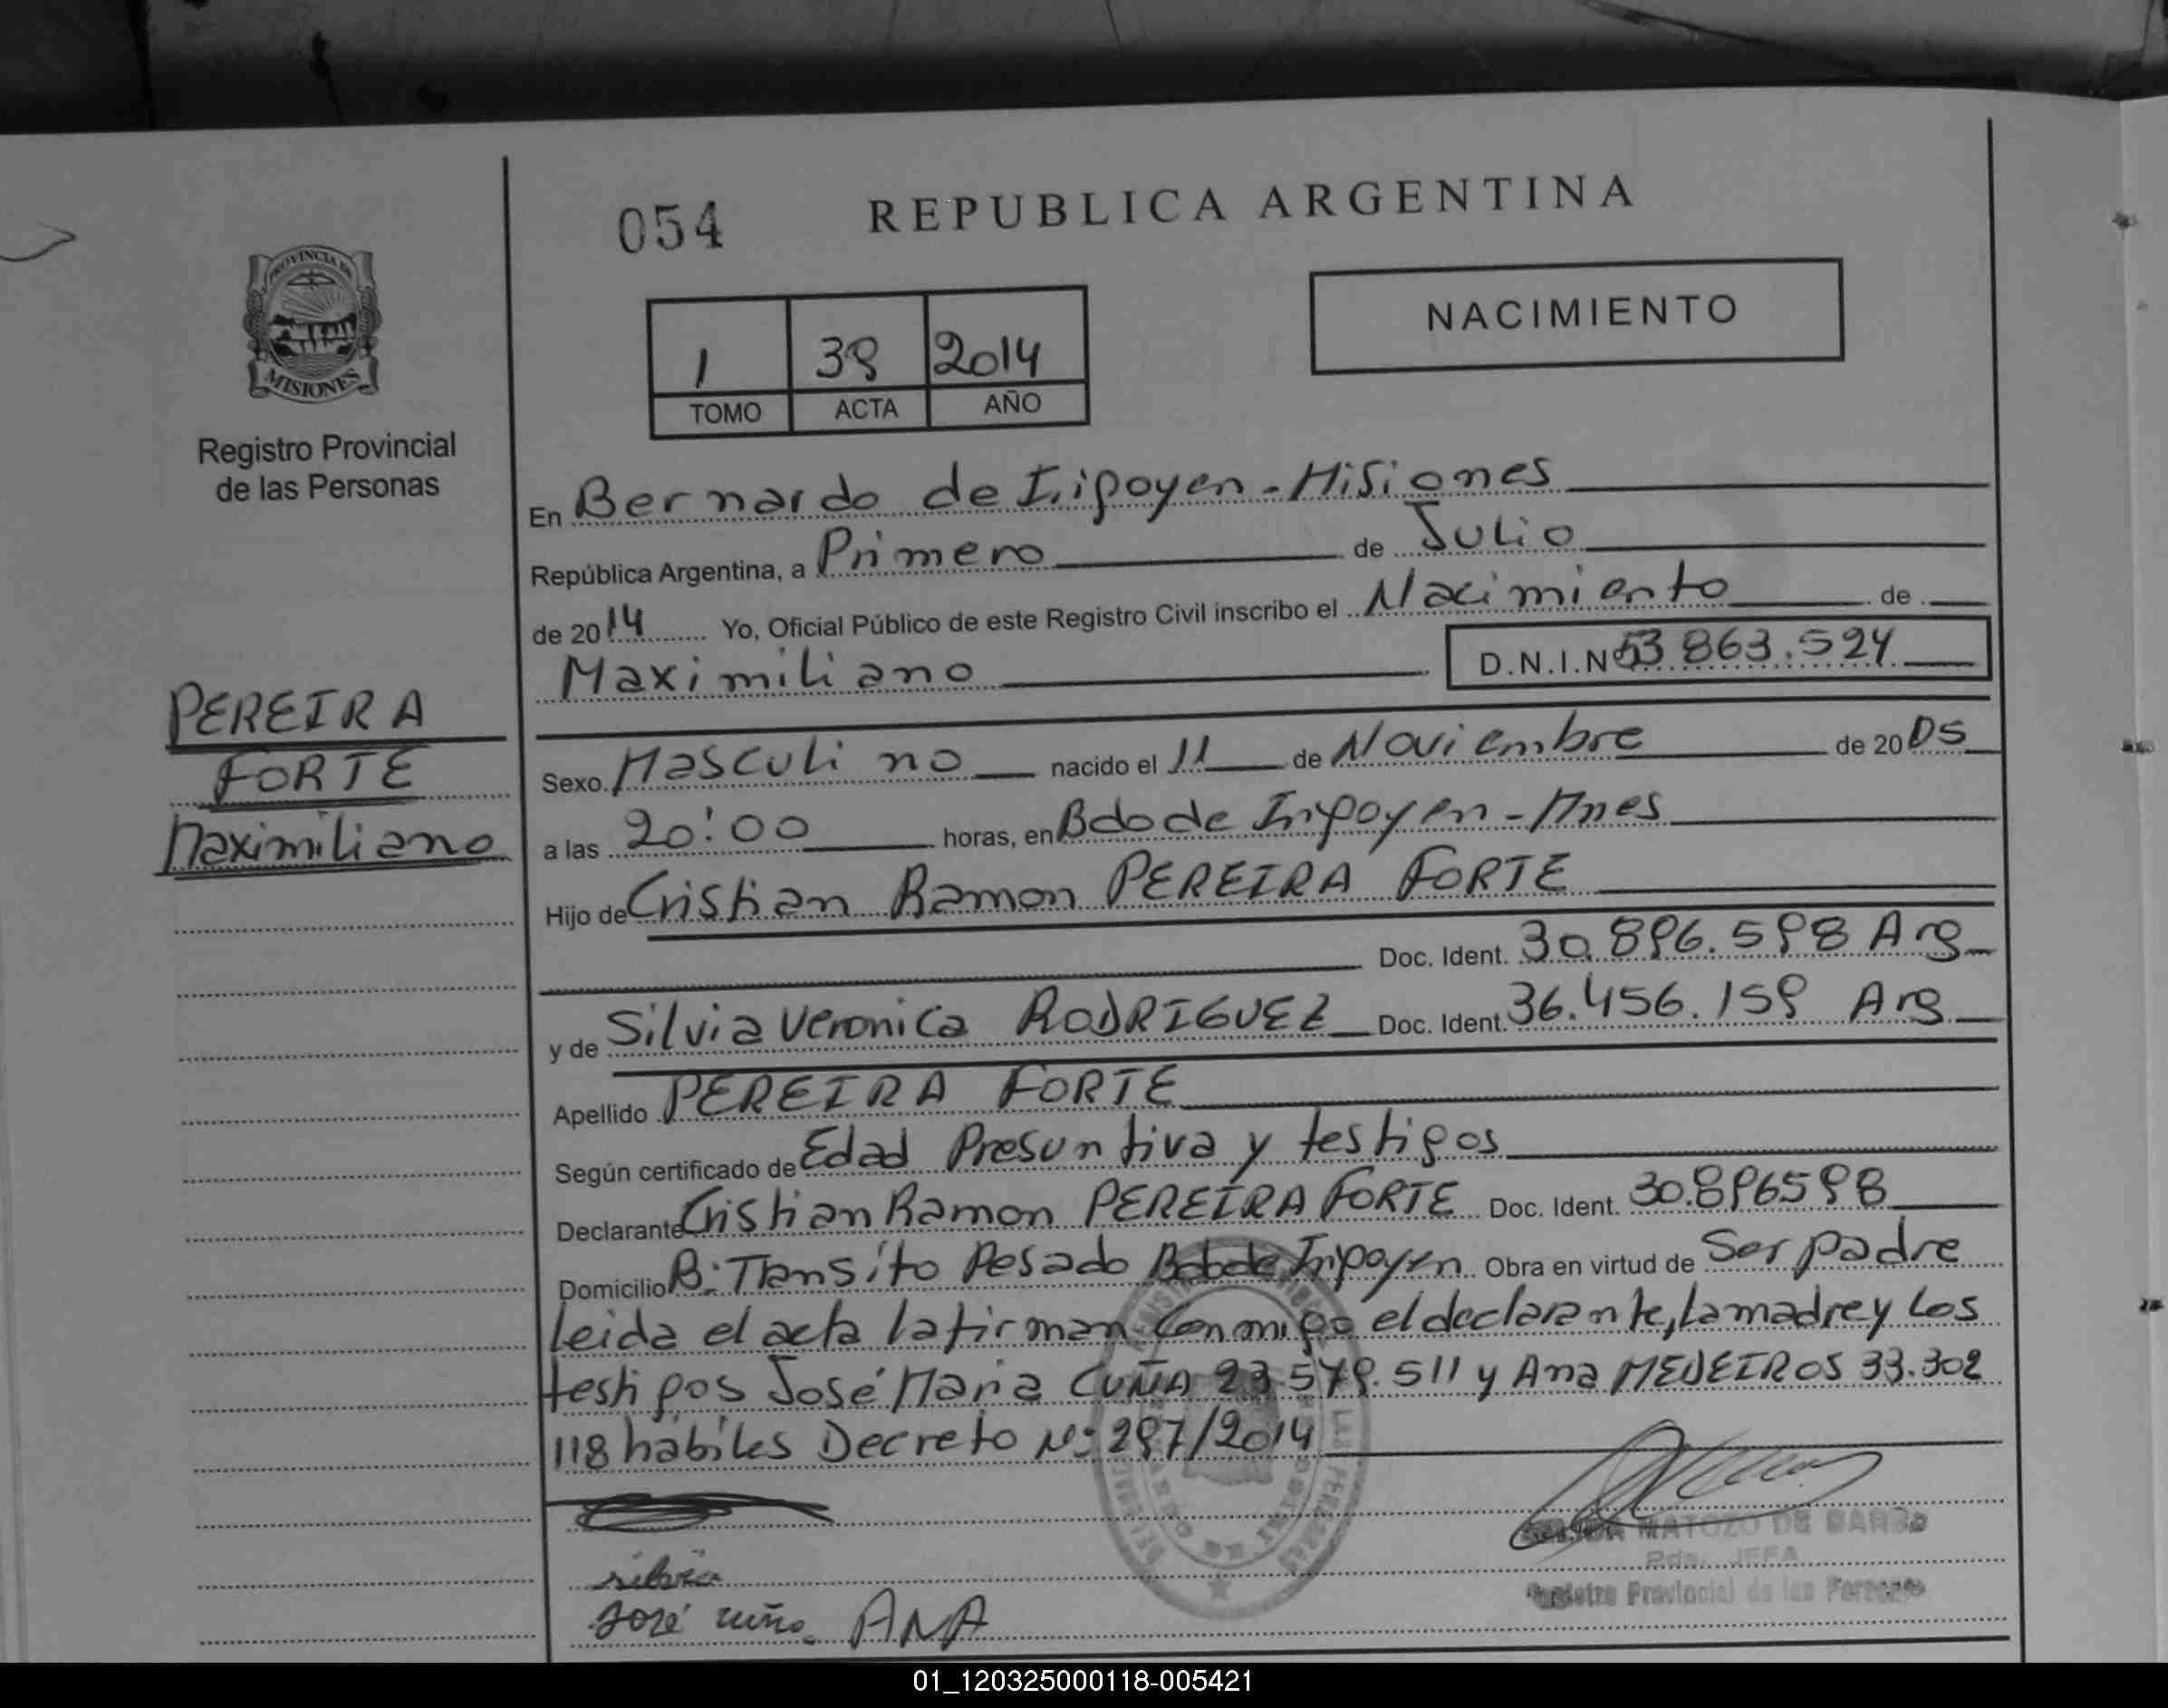 054
REPUBLICA ARGENTINA
PROVINCIA DE
MISIONES
Registro Provincial
de las Personas
NACIMIENTO
1 39 2014
TOMO ACTA AÑO
En Bernardo de Irigoyen - Misiones
República Argentina, a Primero de Julio
de 2014 Yo, Oficial Público de este Registro Civil inscribo el Nacimiento de
Maximiliano D.N.I.Nº 53 863.524
PEREIRA
FORTE
Maximiliano
Sexo Masculino nacido el 11 de Noviembre de 20 05
a las 20:00 horas, en Bdo de Irigoyen - Mnes
Hijo de Cristian Ramon PEREIRA FORTE
Doc. Ident. 30.896.598 Arg
y de Silvia Veronica RODRIGUEZ Doc. Ident. 36.456.159 Arg
Apellido PEREIRA FORTE
Según certificado de Edad Presuntiva y testigos
Declarante Cristian Ramon PEREIRA FORTE Doc. Ident. 30.896598
Domicilio B: Transito Pesado Bdo de Irigoyen Obra en virtud de Ser padre
leida el acta la firman conmigo el declarante, la madre y los
testigos José Maria CUÑA 23 579.511 y Ana MEDEIROS 33.302
118 habiles Decreto Nº 297/2014
silvia
José ANA
MATOZO DE
JEFA
Registro Provincial de las Personas
01_120325000118-005421